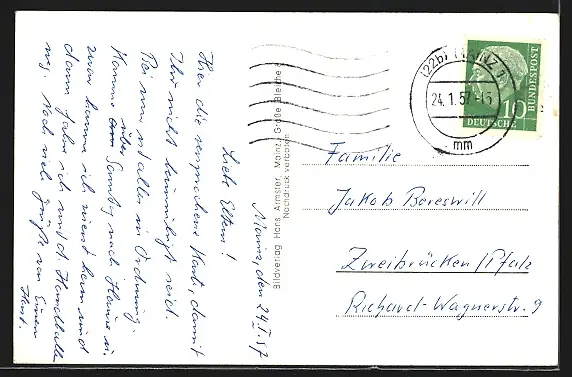 Mainz, den 24.I.57
Liebe Eltern!
Hier die versprochene Karte, damit
Ihr nicht beunruhigt seid.
Bei mir ist alles in Ordnung.
Komme am Samstag nach Hause u.
über
zwar komme ich zuerst heim und
dann fahre ich mit d. Handballe
weg. Noch viele Grüße von Eurem
Horst.
Bildverlag Hans Armster, Mainz, Große Bleiche
Nachdruck verboten
(22b) MAINZ 1
24.1.57-15
mm
10
DEUTSCHE
BUNDESPOST
Familie
Jakob Bereswill
Zweibrücken/Pfalz
Richard-Wagnerstr. 9